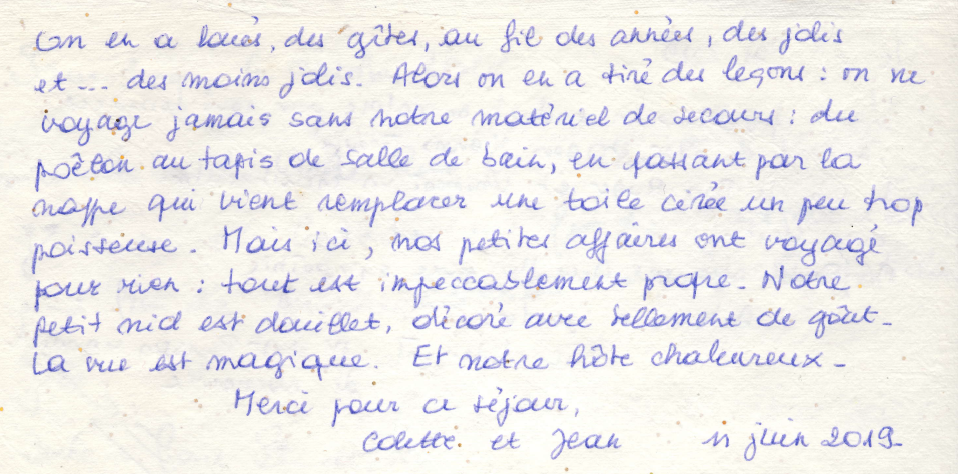 On en a loués, des gîtes, au fil des années, des jolis
et... des moins jolis. Alors on en a tiré des leçons : on ne
voyage jamais sans notre matériel de secours : du
poêlon au tapis de salle de bain, en passant par la
nappe qui vient remplacer une toile cirée un peu trop
poisseuse. Mais ici, nos petites affaires ont voyagé
pour rien : tout est impeccablement propre. Notre
petit nid est douillet, décoré avec tellement de goût.
La vue est magique. Et notre hôte chaleureux.
Merci pour ce séjour,
Colette et Jean 11 juin 2019.